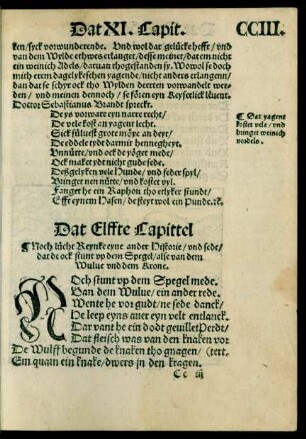 Dat XI. Capit. CCIII.
ken/syck vorwunderende. Vnd wol dar gelücke hefft/vnd
van dem Wylde ethwes erlanget/desse meinet/dat em nicht
ein weinich Adels/daruan thogestanden sy. Wowol se doch
mith erem dagelykeschen yagende/nicht anders erlangenn/
dan dat se schyr ock tho Wylden derten vorwandelt wer-
den/vnd meinen dennoch/se föhren eyn Keyserlick leuent.
Doctor Sebastianus Brandt spreckt.
De ys vorware eyn narre recht/
De vele kost an yagent lecht.
Sick süluest grote möye an deyt/
De de edele tydt darmit hennegheyt.
Vnnütte/vnd ock de yöget mede/
Ock maket ydt nicht gude sede.
Deßgelyken vele Hunde/vnd feder spyl/
Bringet nen nütte/vnd kostet vyl.
Fanget he ein Raphon tho etyker stundt/
Effte eynem Hasen/de steyt wol ein Punde.
¶ Dat yagent
kostet vele/vnd
bringet weinich
vordels.
Dat Elffte Capittel
¶ Noch lücht Reynke eyne ander Historie/vnd sede/
dat de ock stunt vp dem Spegel/alse van dem
Wulue vnd dem Krone.
NOch stunt vp dem Spegel mede.
Van dem Wulue/ein ander rede.
Wente he vor gudt/ne sede danck/
He leep eyns auer eyn velt entlanck.
Dar vant he ein dodt geuillet Perdt/
Dat fleisch was van den knaken vor
De Wulff begunde de knaken tho gnagen/ (tert.
Em quam ein knake/dwers jn den kragen.
Cc iij